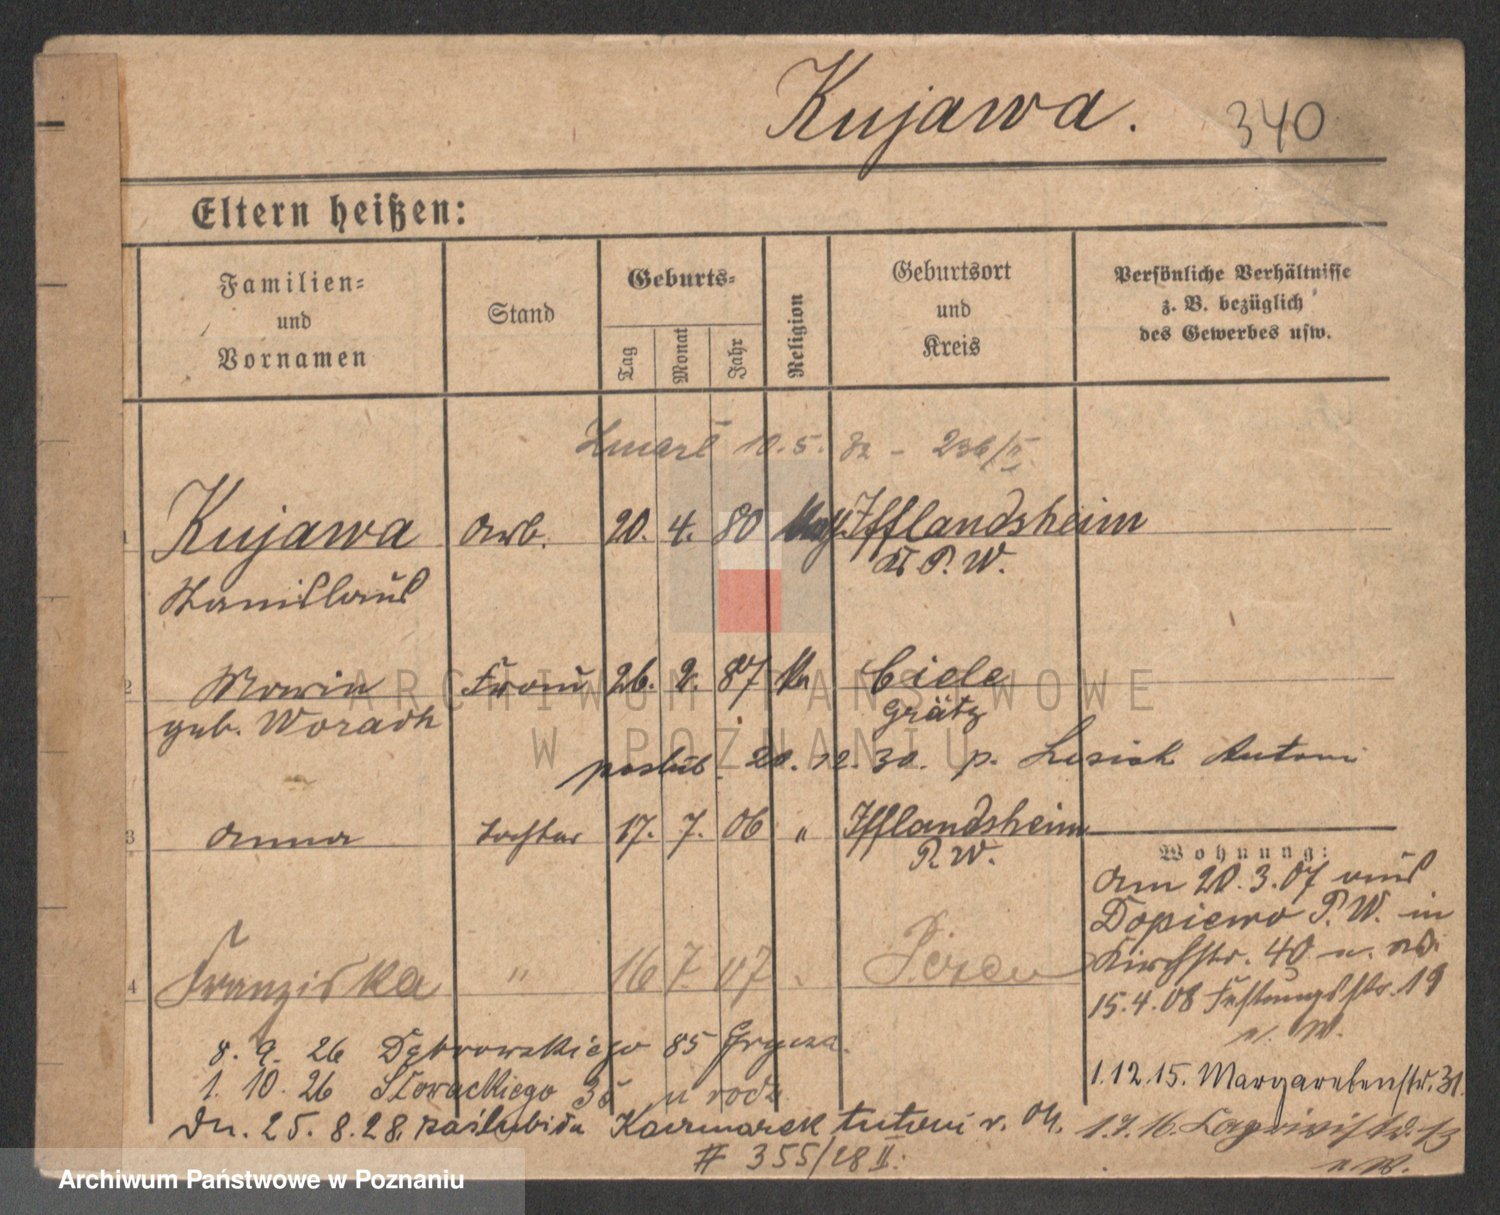 Kujawa. 340
Eltern heißen:
Familien= und Vornamen
Stand
Geburts=
Tag
Monat
Jahr
Religion
Geburtsort und Kreis
Persönliche Verhältnisse z. B. bezüglich des Gewerbes usw.
Zmarł 10.5.32 - 236/II
1 Kujawa Arb. 20. 4. 80 Ifflandsheim
Stanislaus Kr P. W.
2 Maria Frau 26. 2. 87 Ka
geb. Grätz
poślub. 20. 12. 30. p. Lisiak Antoni
3 Anna Tochter 17. 7. 06 " Ifflandsheim
P. W.
Wohnung:
Am 20.3.07 aus
Dopiewo P. W. in
Kirchstr. 40 u. W.
4 Franziska " 16 7 07 Posen
15.4.08 Festungsstr. 19
u. W.
8. 9. 26 Dąbrowskiego 85
1. 10. 26 Słowackiego 35 u rodz.
1.12.15. Margarethenstr. 31.
Dn. 25. 8. 28. zaślubiła Kaczmarek Antoni
1.7.16.
# 355/28 II.
u. W.
ARCHIWUM PAŃSTWOWE
W POZNANIU
Archiwum Państwowe w Poznaniu